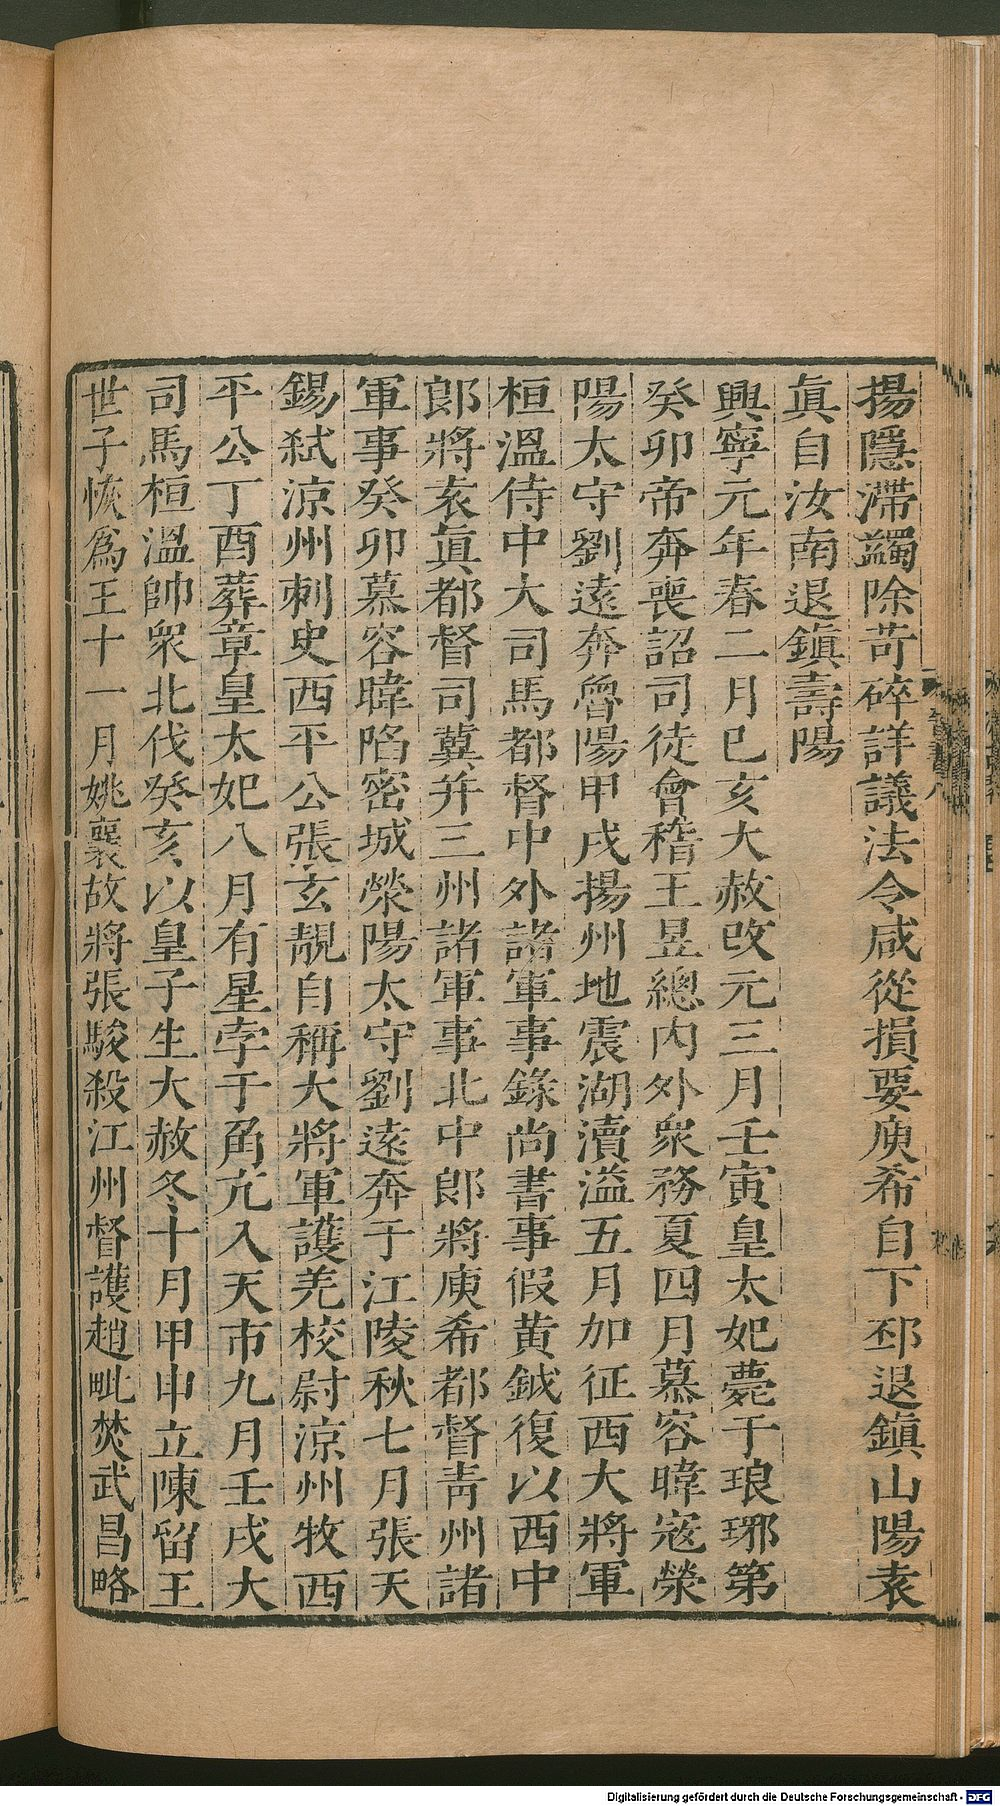 揚隱滯蠲除苛碎詳議法令咸從損要庾希自下邳退鎮山陽袁
眞自汝南退鎮壽陽
興寧元年春二月己亥大赦改元三月壬寅皇太妃薨于琅琊第
癸卯帝奔喪詔司徒會稽王昱總內外衆務夏四月慕容暐寇滎
陽太守劉遠奔魯陽甲戌揚州地震湖瀆溢五月加征西大將軍
桓溫侍中大司馬都督中外諸軍事錄尚書事假黃鉞復以西中
郎將袁眞都督司冀幷三州諸軍事北中郎將庾希都督靑州諸
軍事癸卯慕容暐陷密城滎陽太守劉遠奔于江陵秋七月張天
錫弒涼州刺史西平公張玄靚自稱大將軍護羌校尉涼州牧西
平公丁酉葬章皇太妃八月有星孛于角亢入天市九月壬戌大
司馬桓溫帥衆北伐癸亥以皇子生大赦冬十月甲申立陳留王
世子恢爲王十一月姚襄故將張駿殺江州督護趙毗焚武昌略
Digitalisierung gefördert durch die Deutsche Forschungsgemeinschaft - DFG